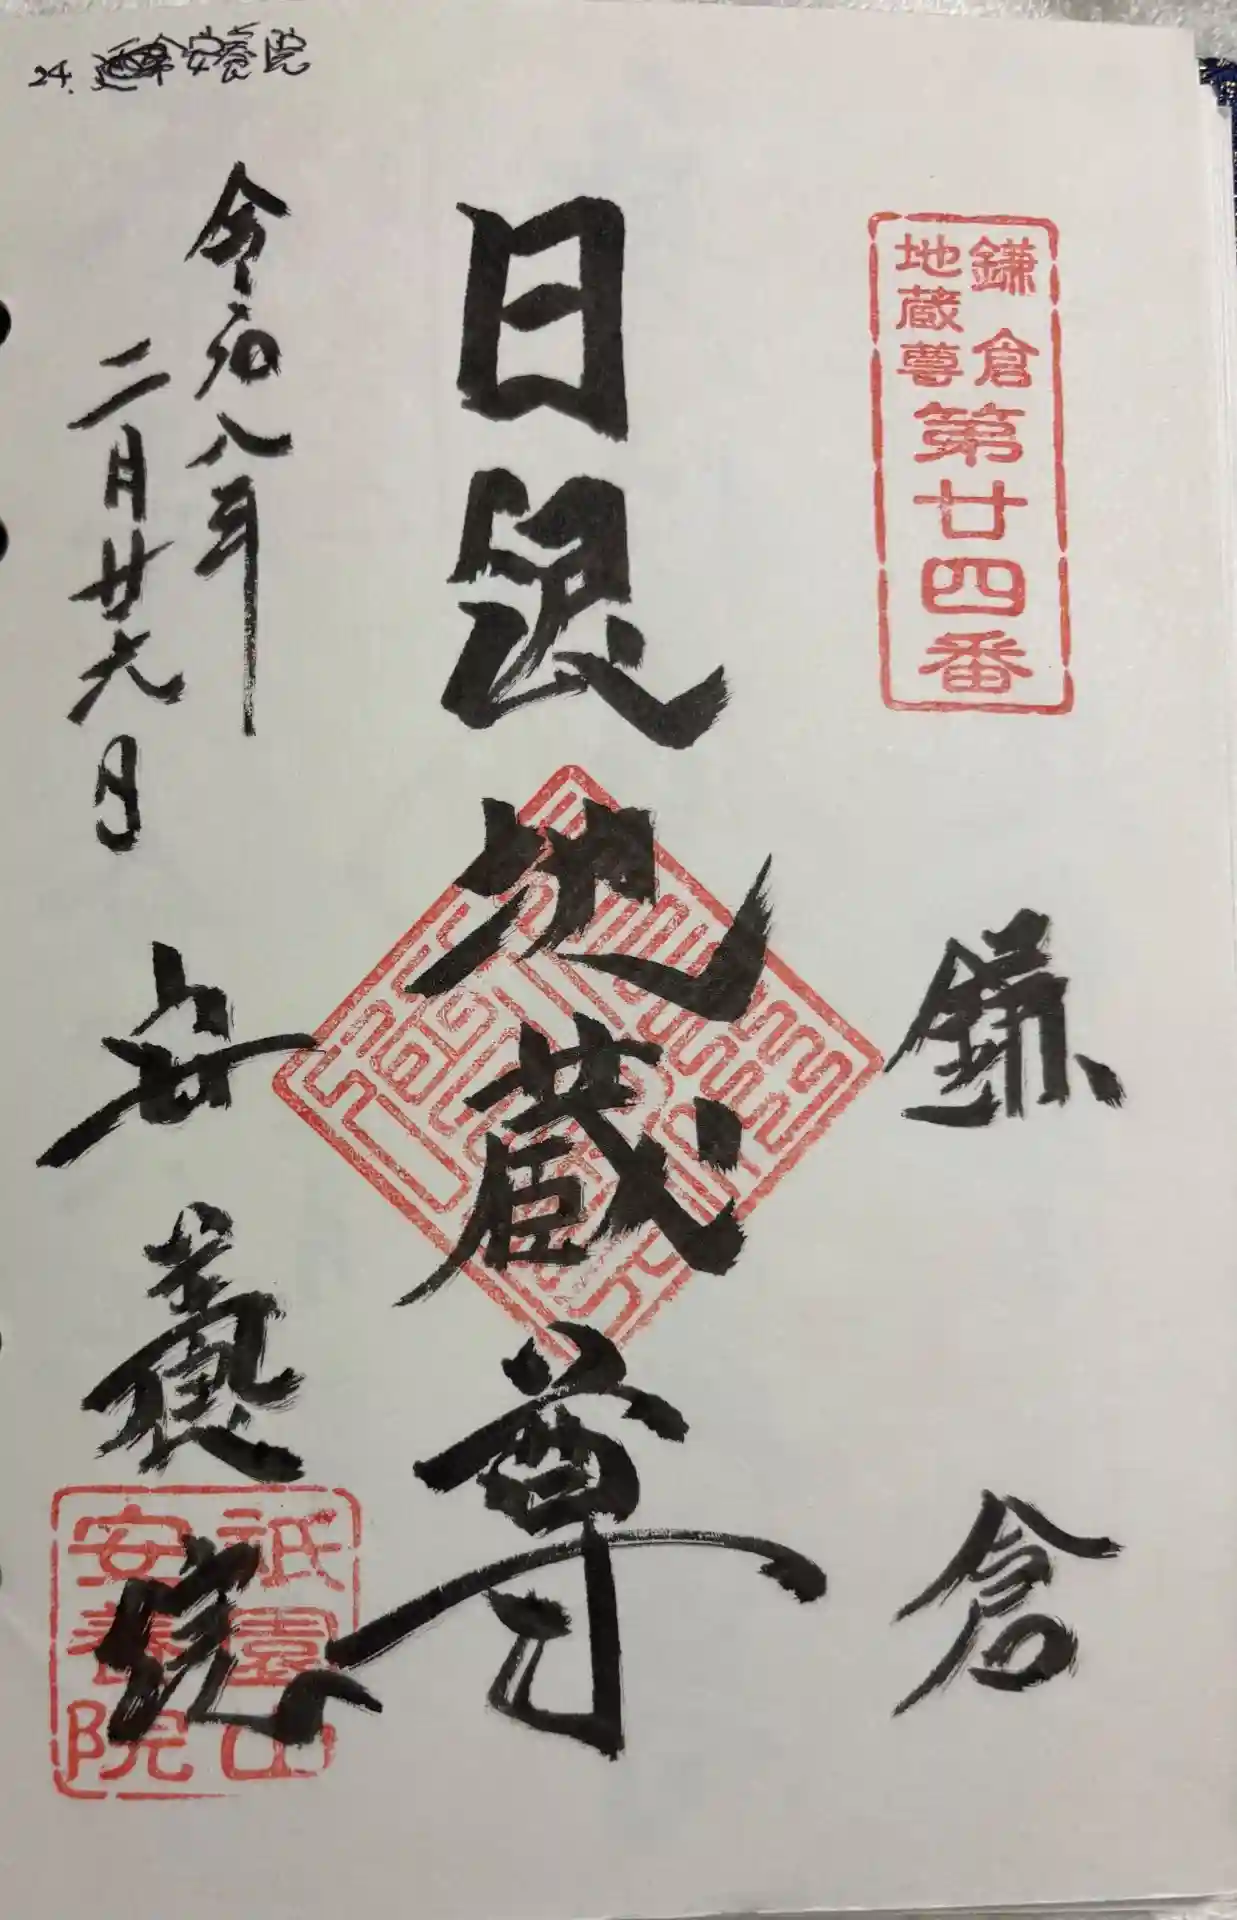 24. 安養院
鎌倉
地蔵尊
第廿四番
鎌倉
日限地蔵尊
令和八年
二月廿六日
安養院
祇園山
安養院